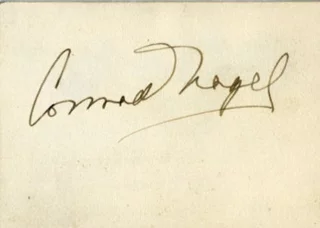 Conrad Nagel